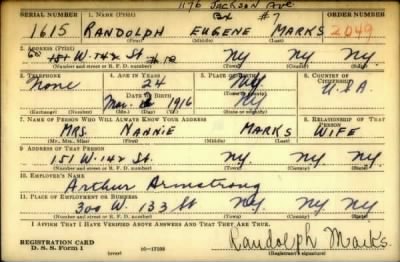 1176 Jackson Ave
Bx #7
SERIAL NUMBER 1. NAME (Print) ORDER NUMBER
1615 RANDOLPH EUGENE MARKS 2049
(First) (Middle) (Last)
2. ADDRESS (Print)
151 W. 142 St. #12 NY NY
(Number and street or R. F. D. number) (Town) (County) (State)
3. TELEPHONE 4. AGE IN YEARS 5. PLACE OF BIRTH 6. COUNTRY OF CITIZENSHIP
None 24 NY
DATE OF BIRTH (Town or county) U.S.A
Nov. 1916 NY
(Exchange) (Number) (Mo.) (Day) (Yr.) (State or country)
7. NAME OF PERSON WHO WILL ALWAYS KNOW YOUR ADDRESS 8. RELATIONSHIP OF THAT PERSON
MRS. NANNIE MARKS WIFE
(Mr., Mrs., Miss) (First) (Middle) (Last)
9. ADDRESS OF THAT PERSON
151 W. 142 St. NY. NY. NY.
(Number and street or R. F. D. number) (Town) (County) (State)
10. EMPLOYER'S NAME
Arthur Armstrong
11. PLACE OF EMPLOYMENT OR BUSINESS
300 W. 133 St NY. NY NY.
(Number and street or R. F. D. number) (Town) (County) (State)
I AFFIRM THAT I HAVE VERIFIED ABOVE ANSWERS AND THAT THEY ARE TRUE.
REGISTRATION CARD
D. S. S. Form 1 (over) 16—17105 Randolph Marks.
(Registrant's signature)